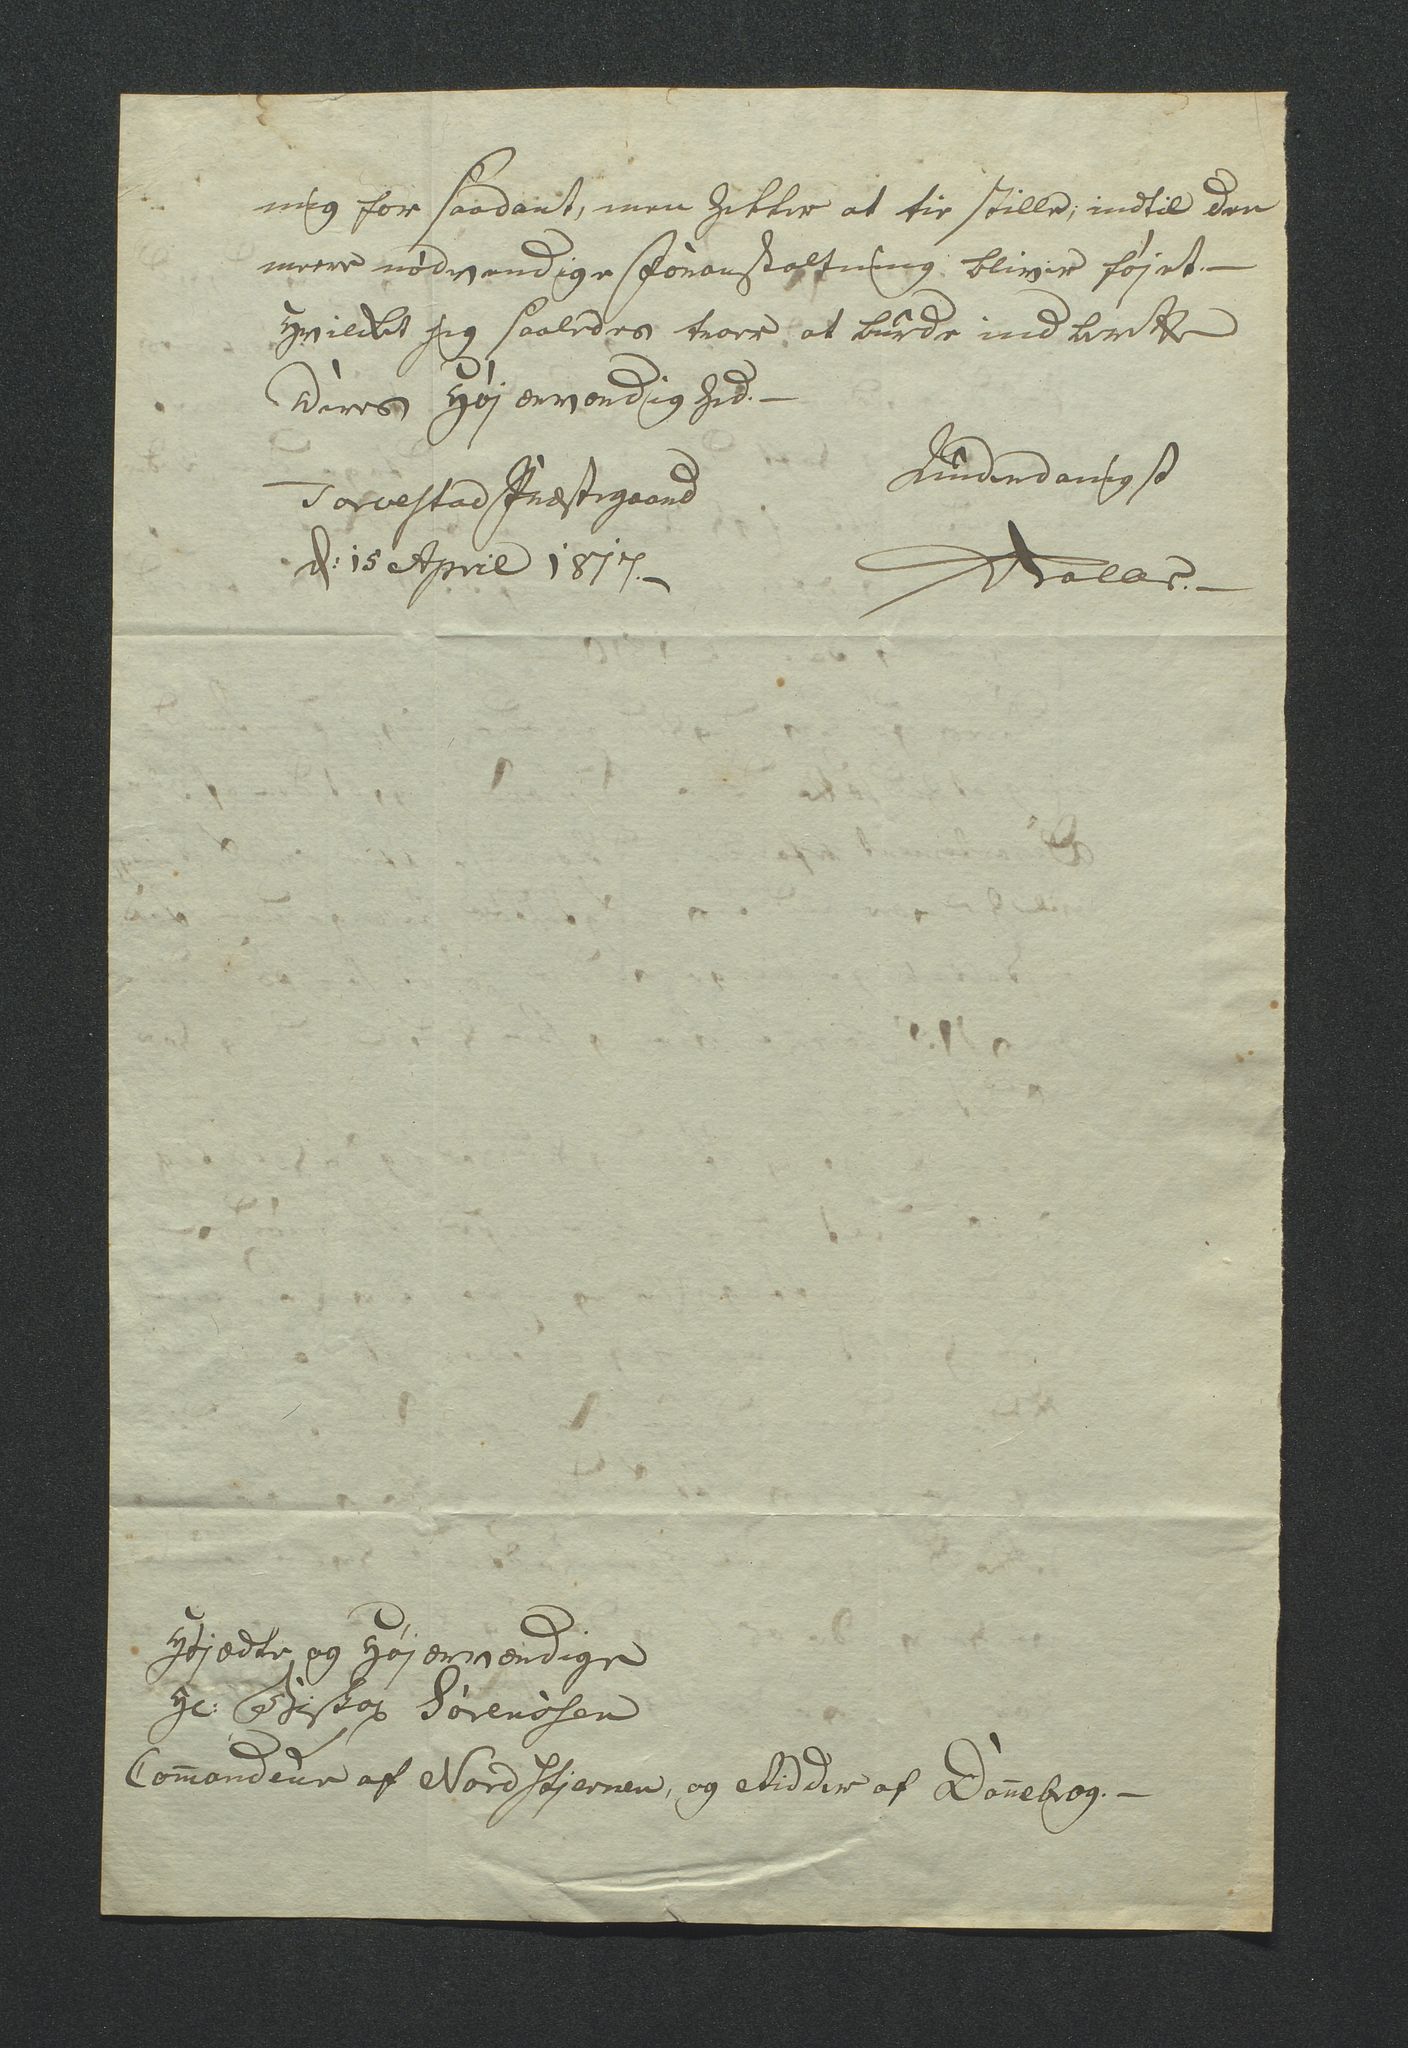 mig for saadant, men heller at tie stille; indtil den
meere nødvendige Foranstaltning bliver føjet.—
Hvilket jeg saaledes troer at burde indberette
Deres Højærværdighed.—
Torvestad Præstegaard
d: 15 April 1817.—
Underdanigst
Højædle og Højærværdige
Hr: Biskop Sörenssen
Com̄andeur af Nordstjernen, og Ridder af Dan̄ebrog.—